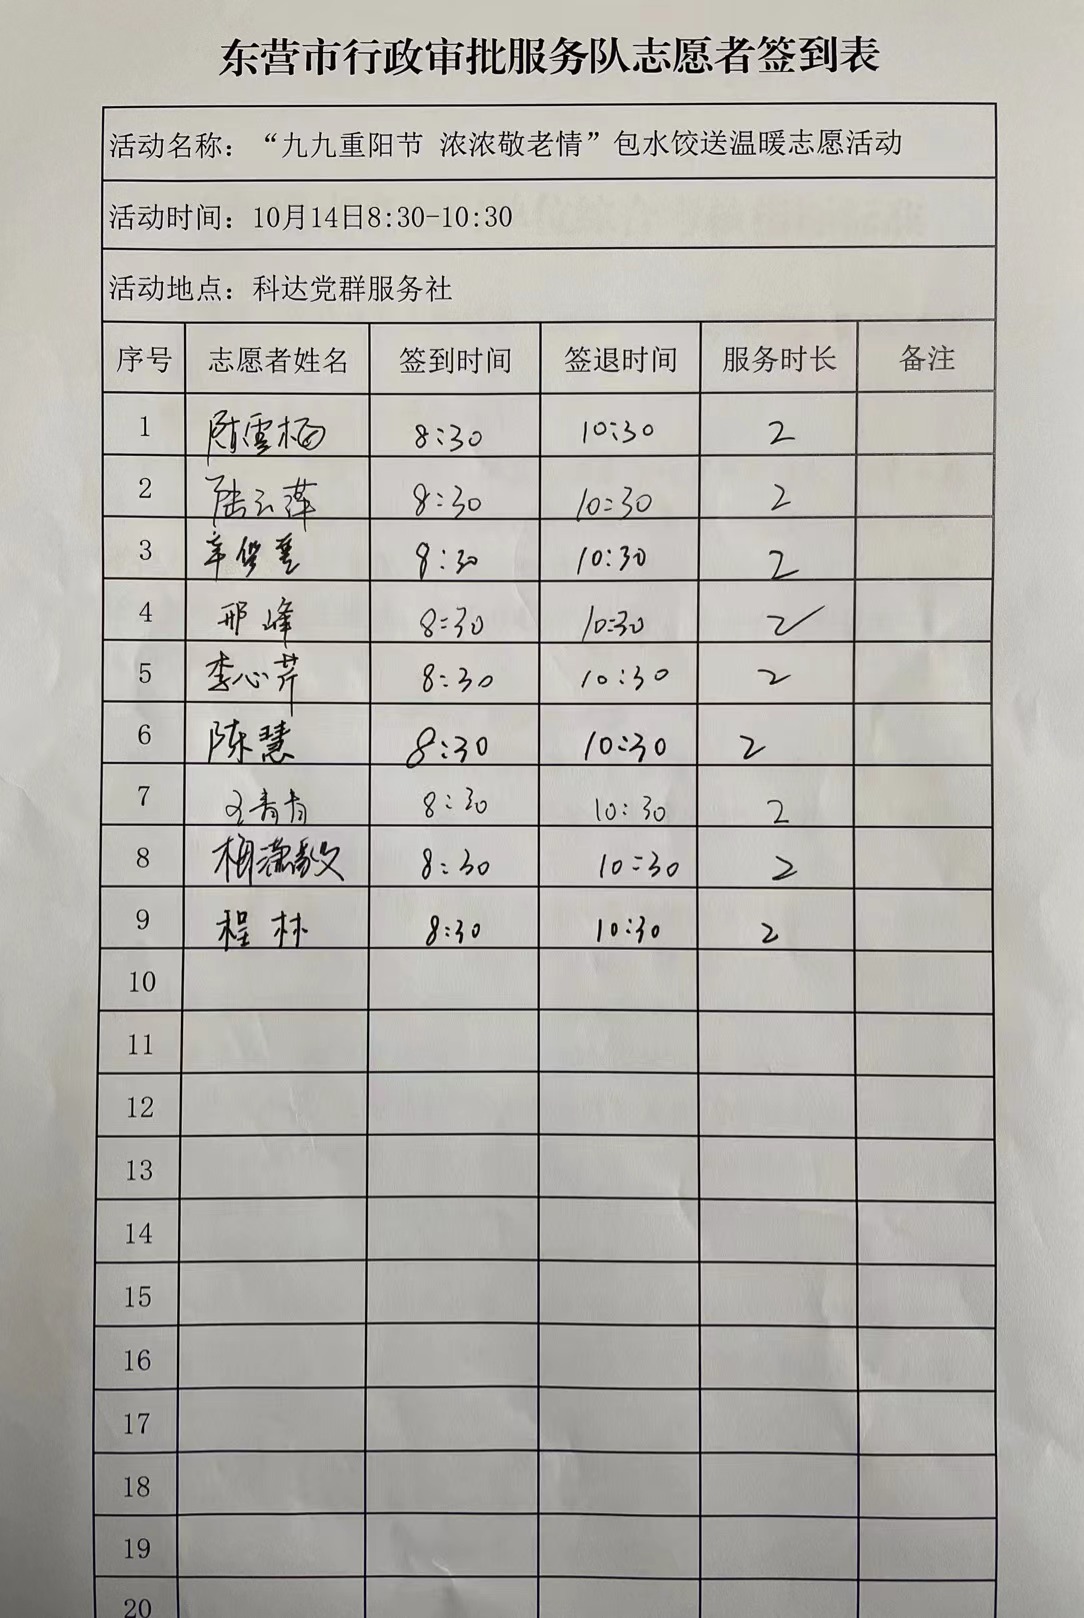 东营市行政审批服务队志愿者签到表
活动名称：“九九重阳节 浓浓敬老情”包水饺送温暖志愿活动
活动时间：10月14日8:30-10:30
活动地点：科达党群服务社
序号 志愿者姓名 签到时间 签退时间 服务时长 备注
1 陈雪梅 8:30 10:30 2
2 陆云萍 8:30 10:30 2
3 8:30 10:30 2
4 邢峰 8:30 10:30 2
5 李心芹 8:30 10:30 2
6 陈慧 8:30 10:30 2
7 王青青 8:30 10:30 2
8 8:30 10:30 2
9 程林 8:30 10:30 2
10
11
12
13
14
15
16
17
18
19
20